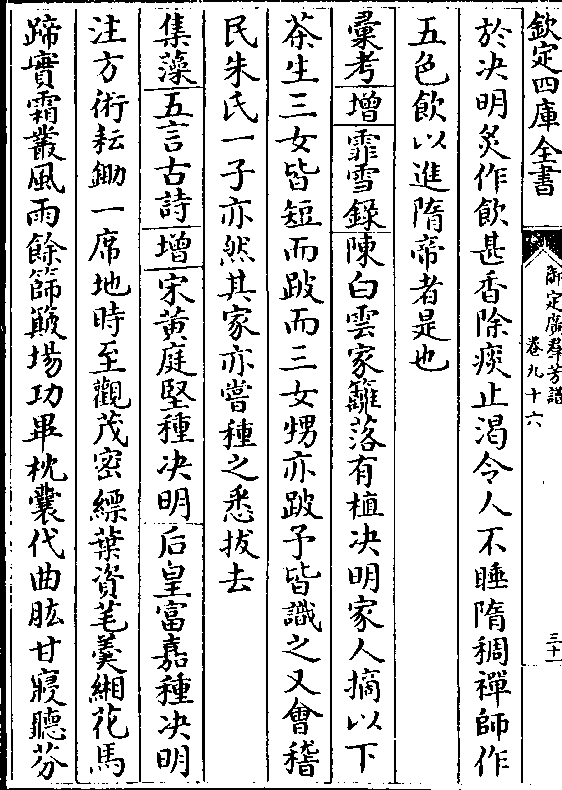 欽定四庫全書
御定廣群芳譜
卷九十六
三十一
於决明炙作飲甚香除痰止渴令人不睡隋稠禪師作
五色飲以進隋帝者是也
彚考增霏雪錄陳白雲家籬落有植决明家人摘以下
茶生三女皆短而跛而三女甥亦跛予皆識之又會稽
民朱氏一子亦然其家亦嘗種之悉拔去
集藻五言古詩增宋黃庭堅種决明后皇富嘉種决明
注方術耘鋤一席地時至觀茂密縹葉資芼羮緗花馬
蹄實霜叢風雨餘篩簸塲功畢枕囊代曲肱甘寢聽芬